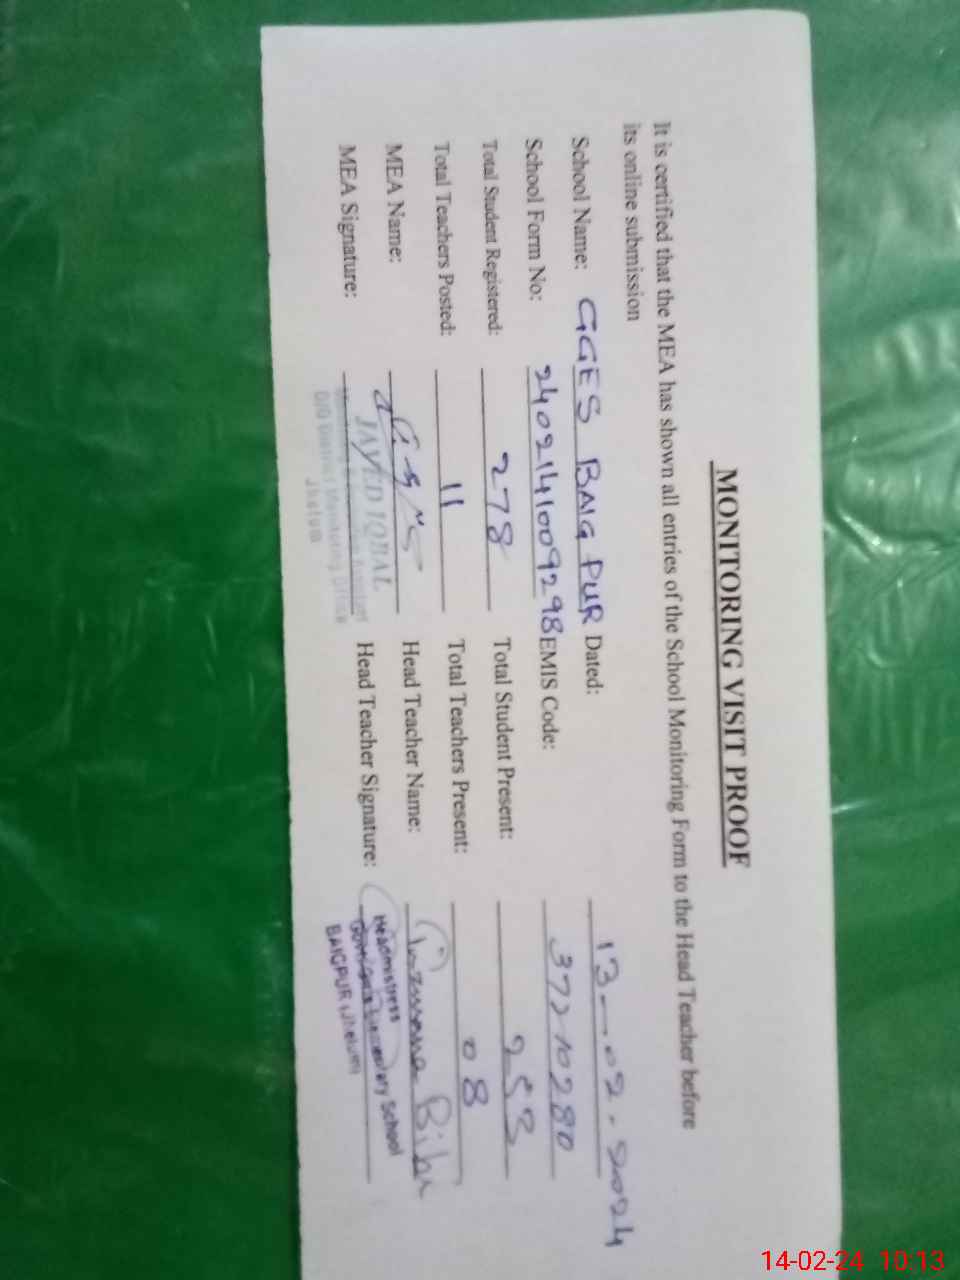 MONITORING VISIT PROOF
It is certified that the MEA has shown all entries of the School Monitoring Form to the Head Teacher before
its online submission
School Name: GGES BAIG PUR Dated: 13-02-2024
School Form No: 2402141009298 EMIS Code: 37210280
Total Student Registered: 278 Total Student Present: 253
Total Teachers Posted: 11 Total Teachers Present: 08
MEA Name: Head Teacher Name: Bibi
MEA Signature: Head Teacher Signature:
JAVED IQBAL
O/O District Monitoring Office
Jhelum
Headmistress
Govt. Girls Elementary School
BAIGPUR (Jhelum)
14-02-24 10:13